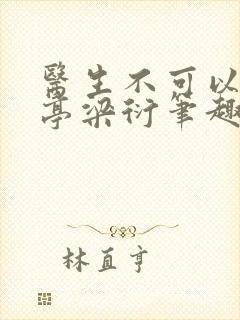 醫生不可以
亭梁衍筆趣
林直亨